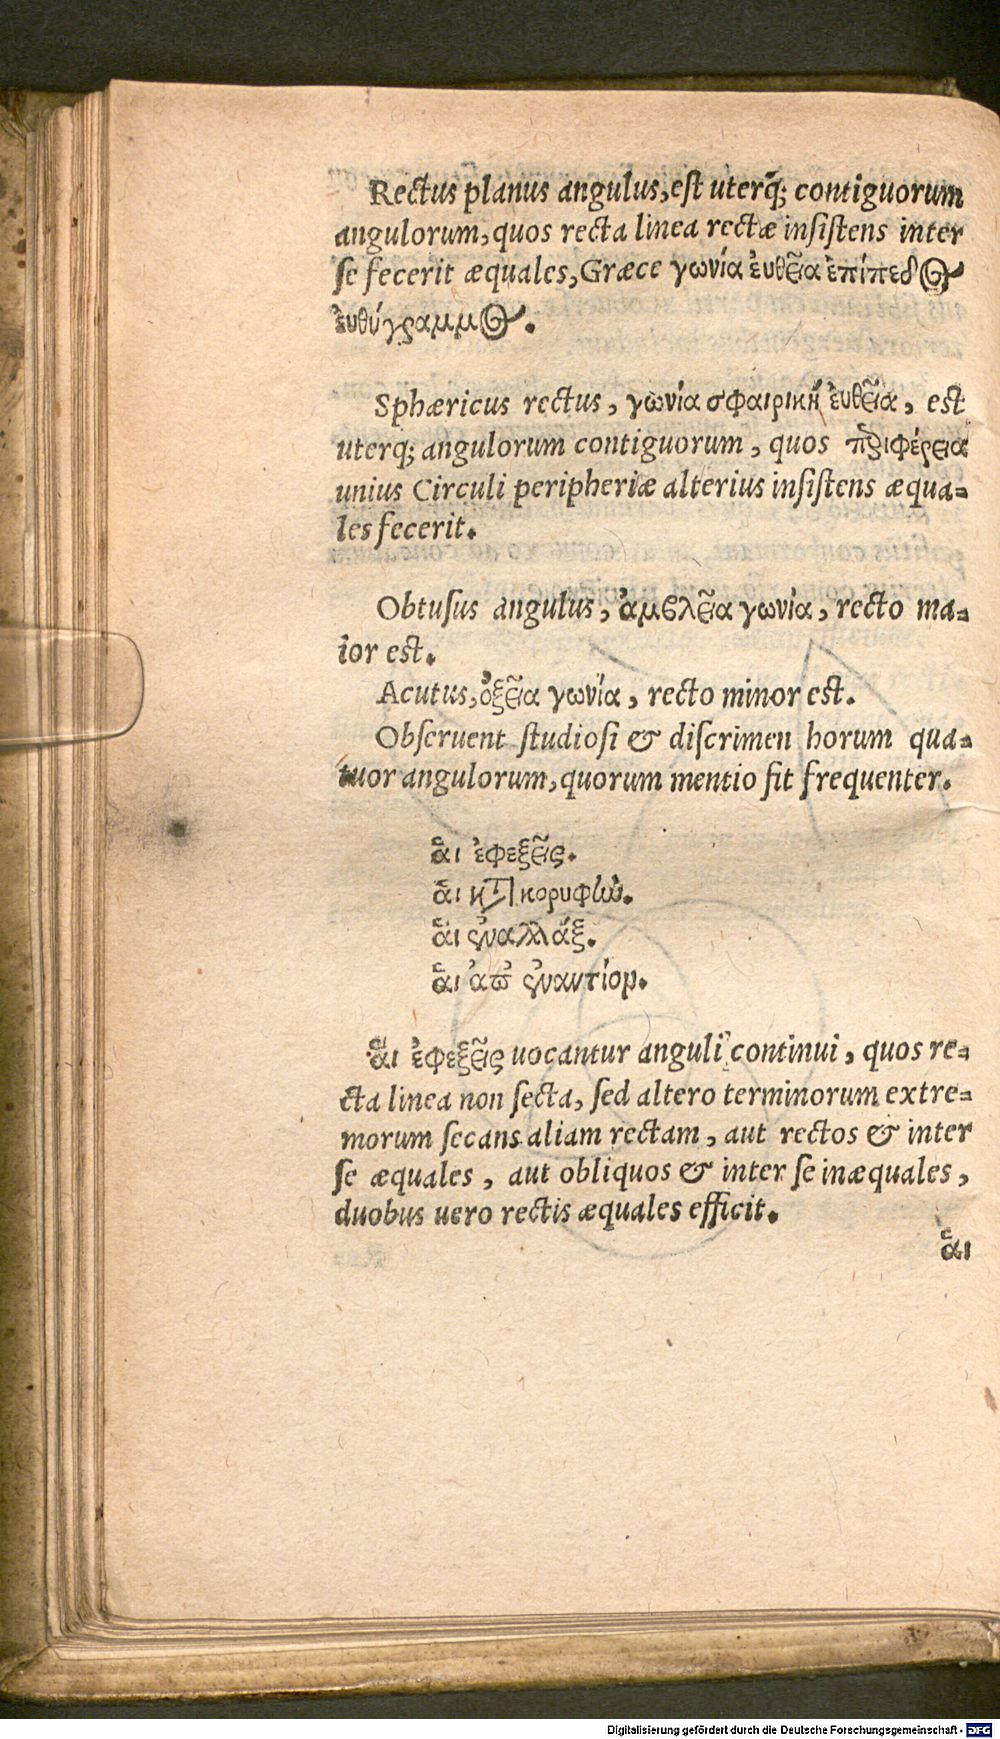 Rectus planus angulus, est uterq; contiguorum
angulorum, quos recta linea rectæ insistens inter
se fecerit æquales, Græce γωνία ἐυθεῖα ἐπίπεδος
ἐυθύγραμμος.
Sphæricus rectus, γωνία σφαιρικὴ ἐυθεῖα, est
uterq; angulorum contiguorum, quos περιφέρεια
unius Circuli peripheriæ alterius insistens æqua-
les fecerit.
Obtusus angulus, ἀμβλεῖα γωνία, recto ma-
ior est.
Acutus, ὀξεῖα γωνία, recto minor est.
Obseruent studiosi & discrimen horum qua-
tuor angulorum, quorum mentio fit frequenter.
ἅι ἐφεξῆς.
ἅι κτ κορυφὼ.
ἅι ἐναλλάξ.
ἅι ἀπ ἐναντίον.
ἅι ἐφεξῆς uocantur anguli continui, quos re-
cta linea non secta, sed altero terminorum extre-
morum secans aliam rectam, aut rectos & inter
se æquales, aut obliquos & inter se inæquales,
duobus uero rectis æquales efficit.
ἅι
Digitalisierung gefördert durch die Deutsche Forschungsgemeinschaft - DFG